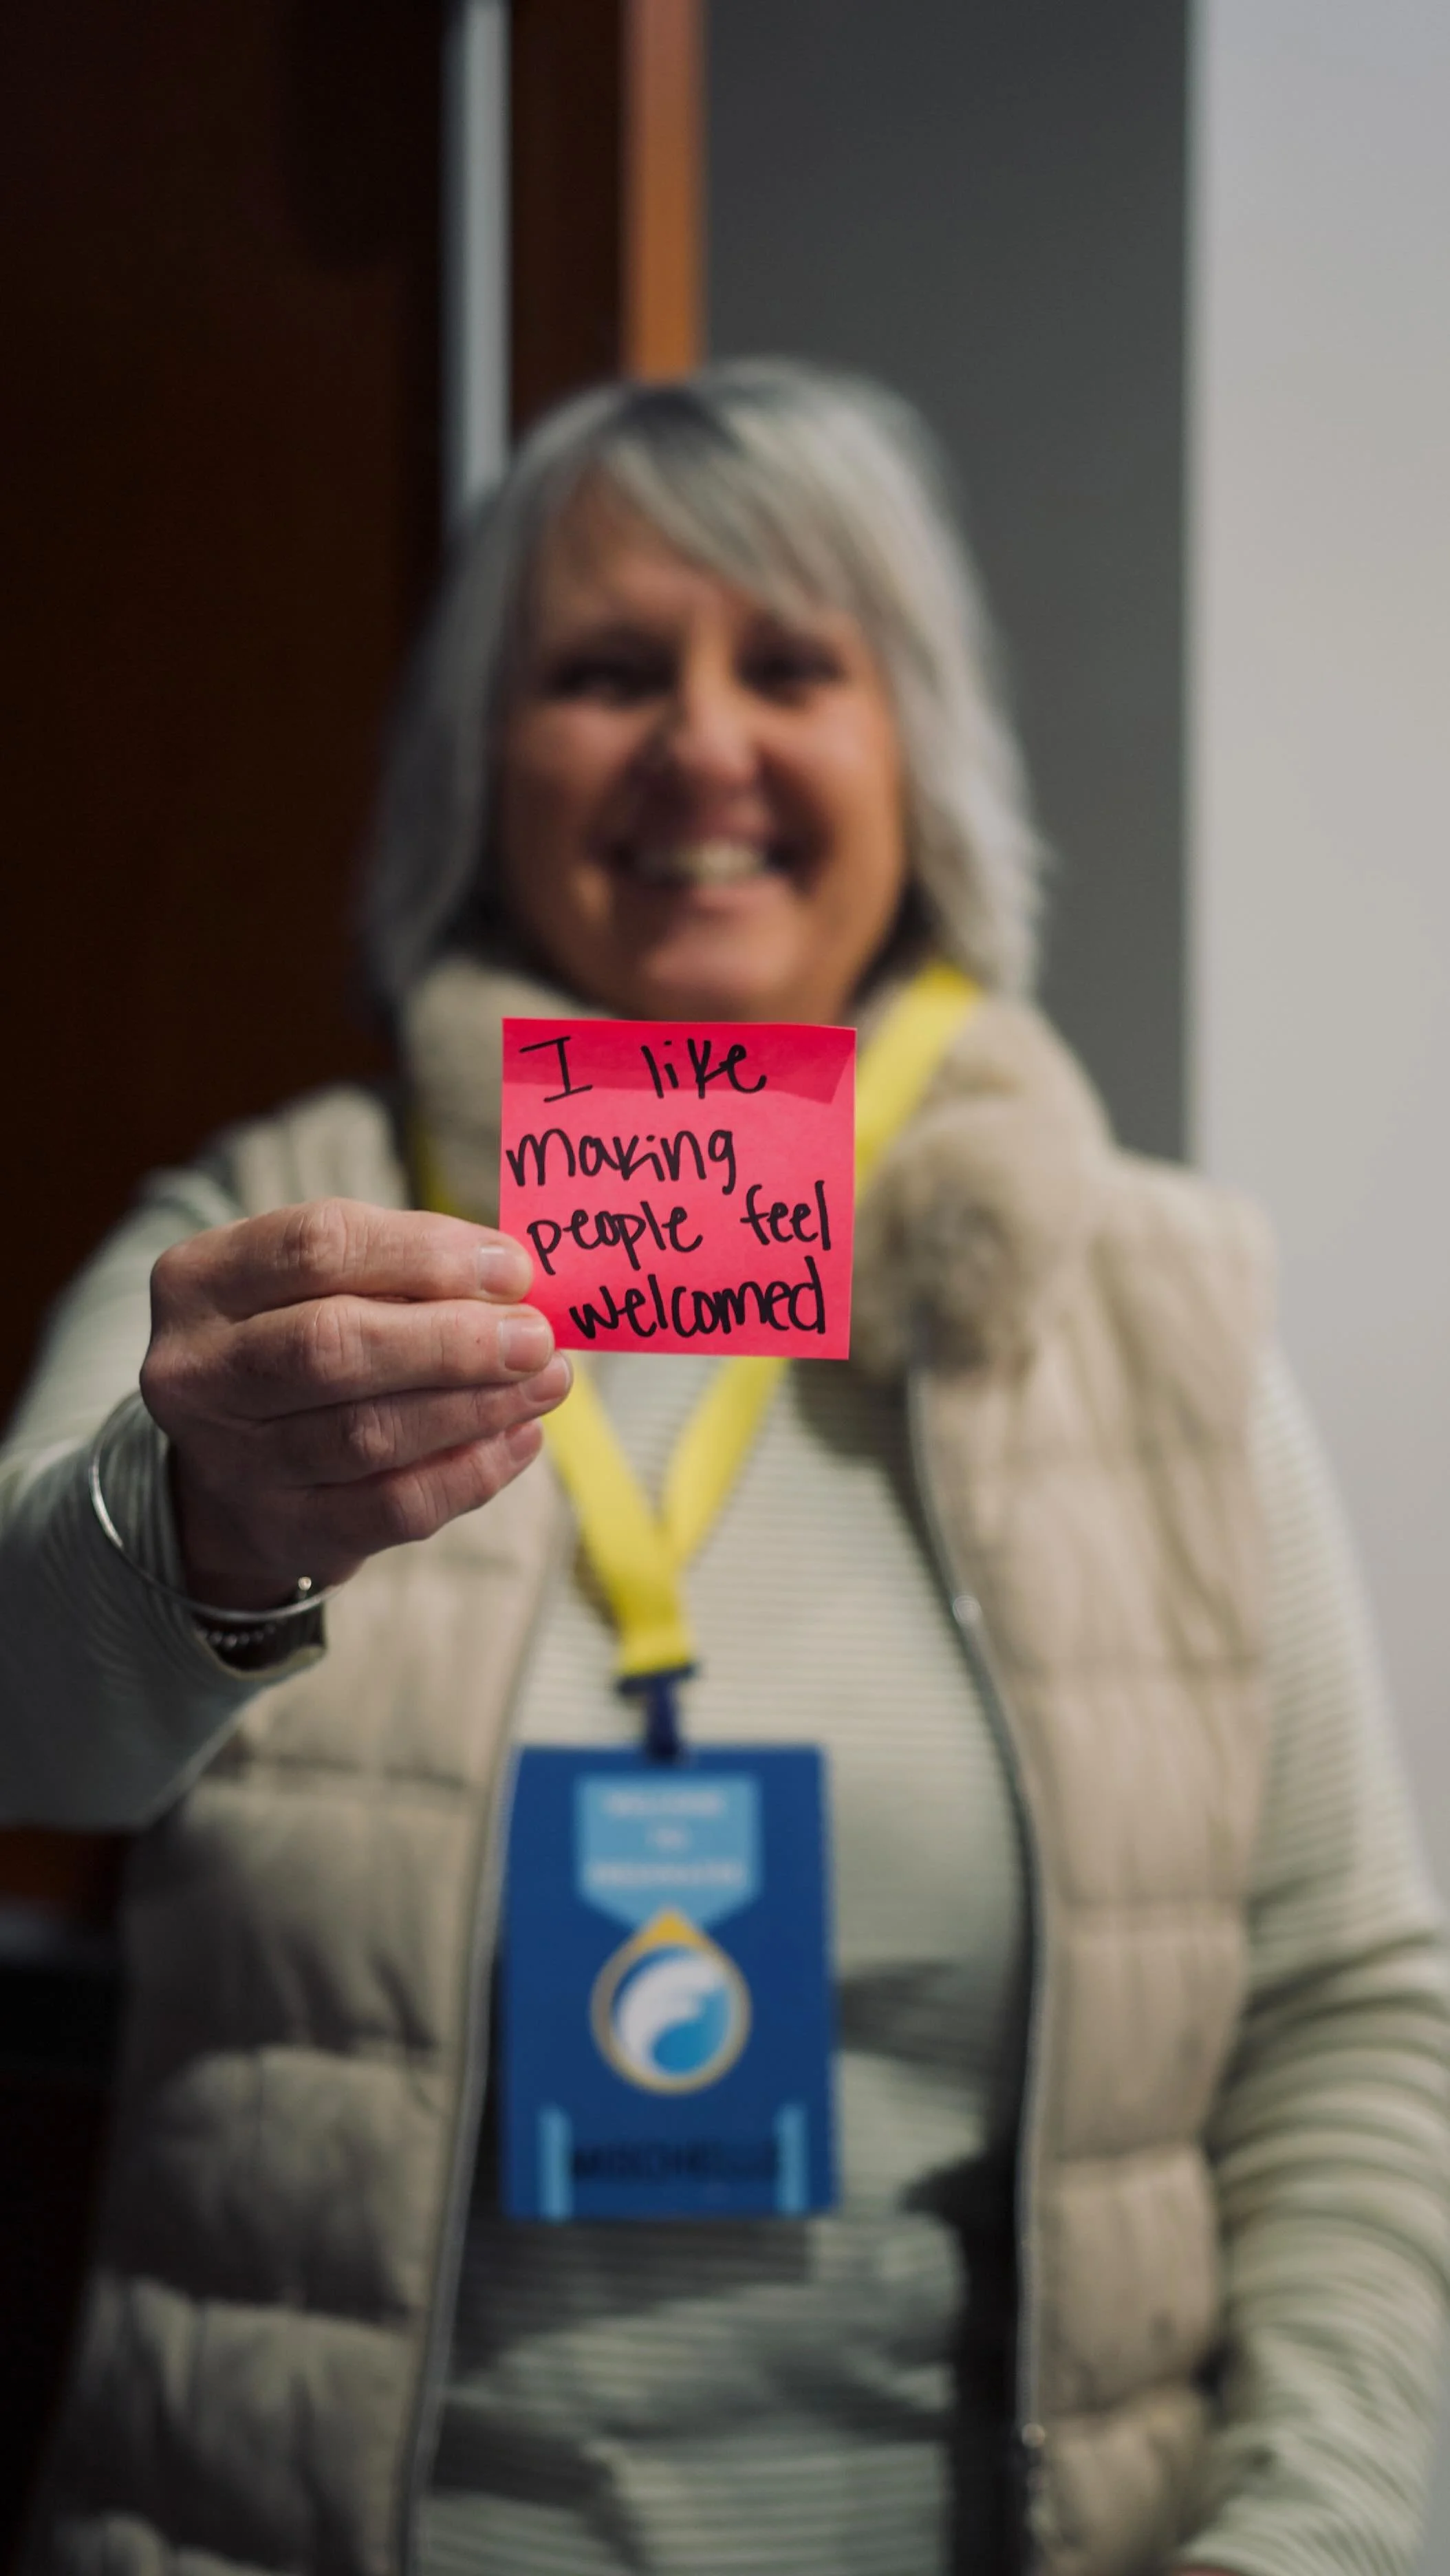 I like
making
people feel
welcomed